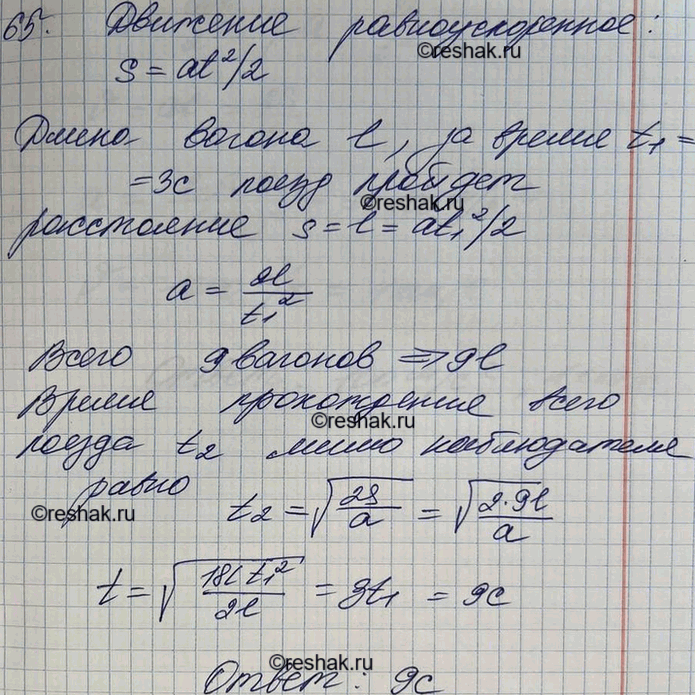 65. Движение равноускоренное:
©reshak.ru
s = at²/2
Длина вагона l, за время t₁ =
= 3с поезд пройдет
©reshak.ru
расстояние s = l = at₁²/2
a = 2l/t₁²
Всего 9 вагонов ⇒ 9l
Время прохождение всего
©reshak.ru
поезда t₂ мимо наблюдателя
равно t₂ = √(2s/a) = √(2·9l/a)
©reshak.ru
t = √(18l t₁²/2l) = 3t₁ = 9с
©reshak.ru
Ответ: 9с